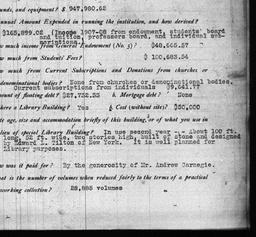 unds, and equipment? $ 947,980.62
nnual Amount Expended in running the institution, and how derived?
$165,899.02 (Income 1907-08 from endowment, students' board
and tuition, professors board, and individual sub-
scriptions.)
w much income from General Endowment (No. 3)? $48,665.57
w much from Students' Fees? $ 100,483.54
w much from Current Subscriptions and Donations from churches or
denominational bodies? None from churches or denominational bodies.
Current subscriptions from individuals $9,641.77
ount of floating debt? $27,732.33 & Mortgage debt? None
here a Library Building? Yes & Cost (without sites)? $50,000
te age, size and accommodation briefly of this building, or of what you use in
lieu of special Library Building? In use second year -- About 100 ft.
long, 52 ft. wide, two stories high, built of stone and designed
by Edward L. Tilton of New York. It is well planned for
Library purposes.
w was it paid for? By the generosity of Mr. Andrew Carnegie.
at is the number of volumes when reduced fairly to the terms of a practical
working collection? 28,885 volumes